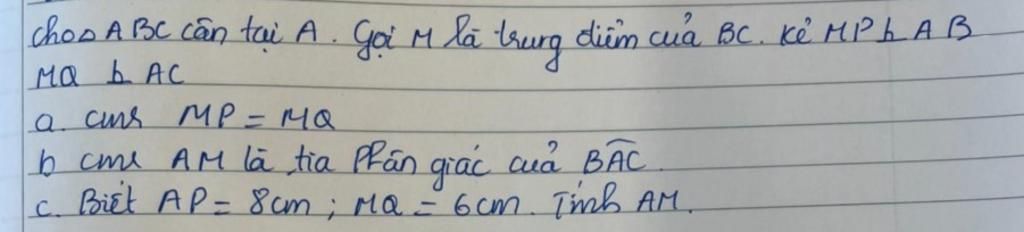 cho△ ABC cân tại A. Gọi M là trung điểm của BC. kẻ MP ⊥ AB
MQ ⊥ AC
a. cmr MP = MQ
b cmr AM là tia phân giác của BAC.
c. Biết AP = 8cm ; MQ = 6cm. Tính AM.